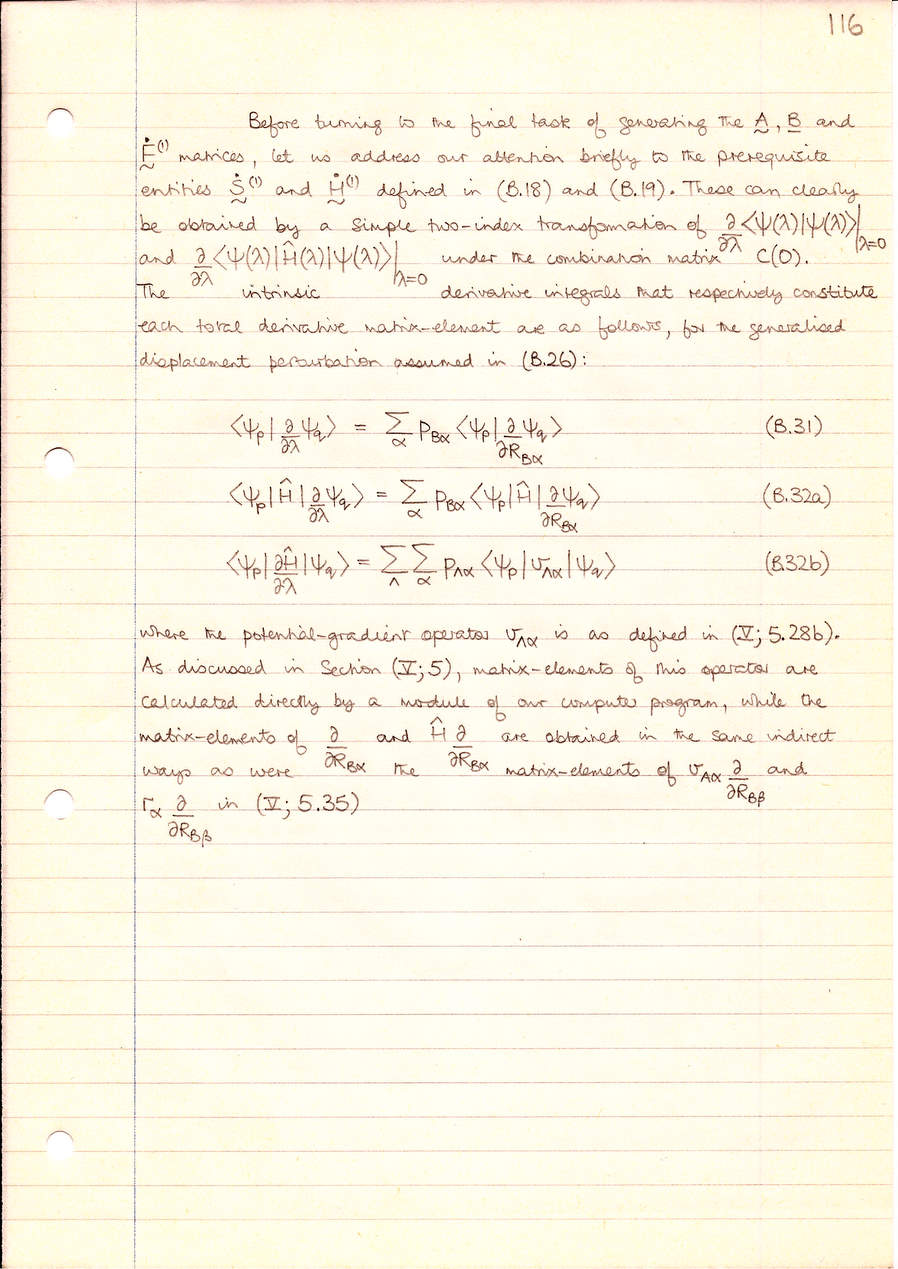 116
Before turning to the final task of generating the A, B and
Ḟ⁽¹⁾ matrices, let us address our attention briefly to the prerequisite
entities Ṡ⁽¹⁾ and Ḣ⁽¹⁾ defined in (B.18) and (B.19). These can clearly
be obtained by a simple two-index transformation of ∂/∂λ <ψ(λ)|ψ(λ)>|λ=0
and ∂/∂λ <ψ(λ)|Ĥ(λ)|ψ(λ)>|λ=0 under the combination matrix C(0).
The intrinsic derivative integrals that respectively constitute
each total derivative matrix-element are as follows, for the generalised
displacement perturbation assumed in (B.26):
<ψp| ∂/∂λ ψq> = Σα pBα <ψp| ∂/∂RBα ψq> (B.31)
<ψp|Ĥ| ∂/∂λ ψq> = Σα pBα <ψp|Ĥ| ∂/∂RBα ψq> (B.32a)
<ψp| ∂Ĥ/∂λ |ψq> = ΣΛ Σα pΛα <ψp|υΛα|ψq> (B.32b)
where the potential-gradient operator υΛα is as defined in (V; 5.28b).
As discussed in Section (V; 5), matrix-elements of this operator are
calculated directly by a module of our computer program, while the
matrix-elements of ∂/∂RBα and Ĥ ∂/∂RBα are obtained in the same indirect
ways as were the matrix-elements of υAα ∂/∂RBβ and
rα ∂/∂RBβ in (V; 5.35)